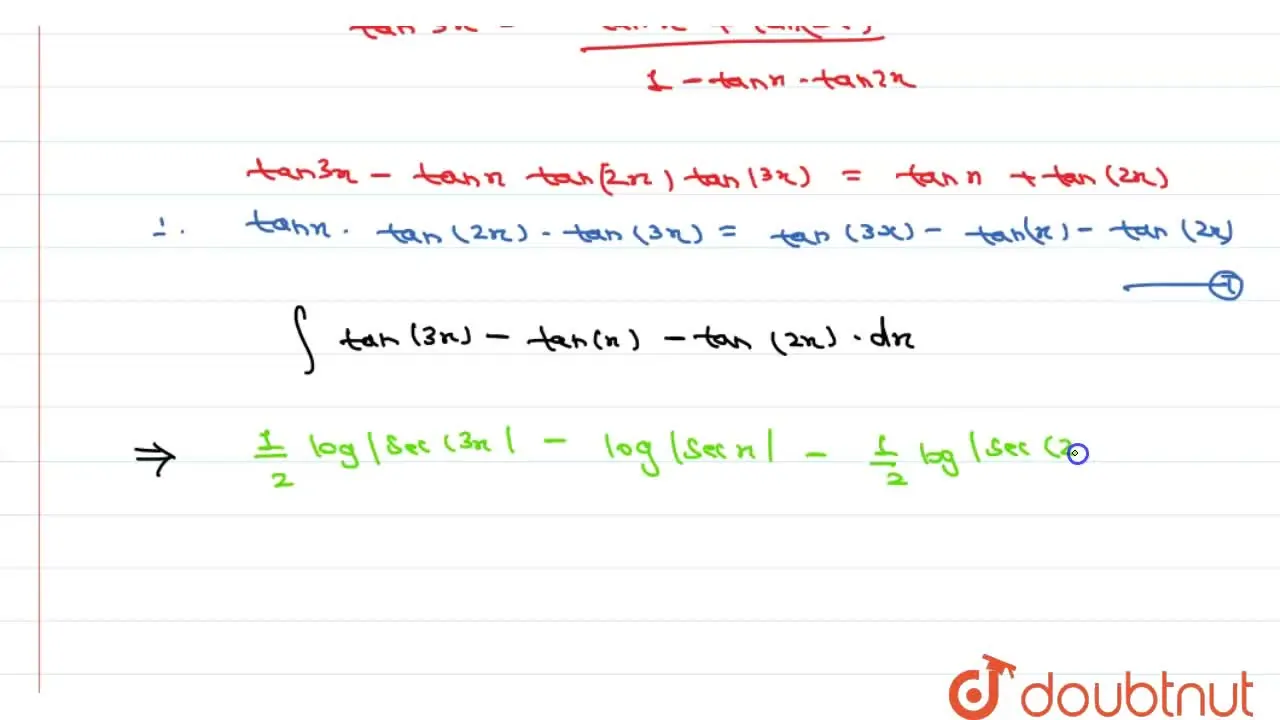 tan 3x =
1 - tanx · tan2x
tan3x - tanx tan(2x) tan(3x) = tanx + tan(2x)
∴ tanx · tan(2x) · tan(3x) = tan(3x) - tan(x) - tan(2x)
① 
∫ tan(3x) - tan(x) - tan(2x) · dx
⇒ 1/2 log|sec(3x| - log|secx| - 1/2 log|sec(2
doubtnut